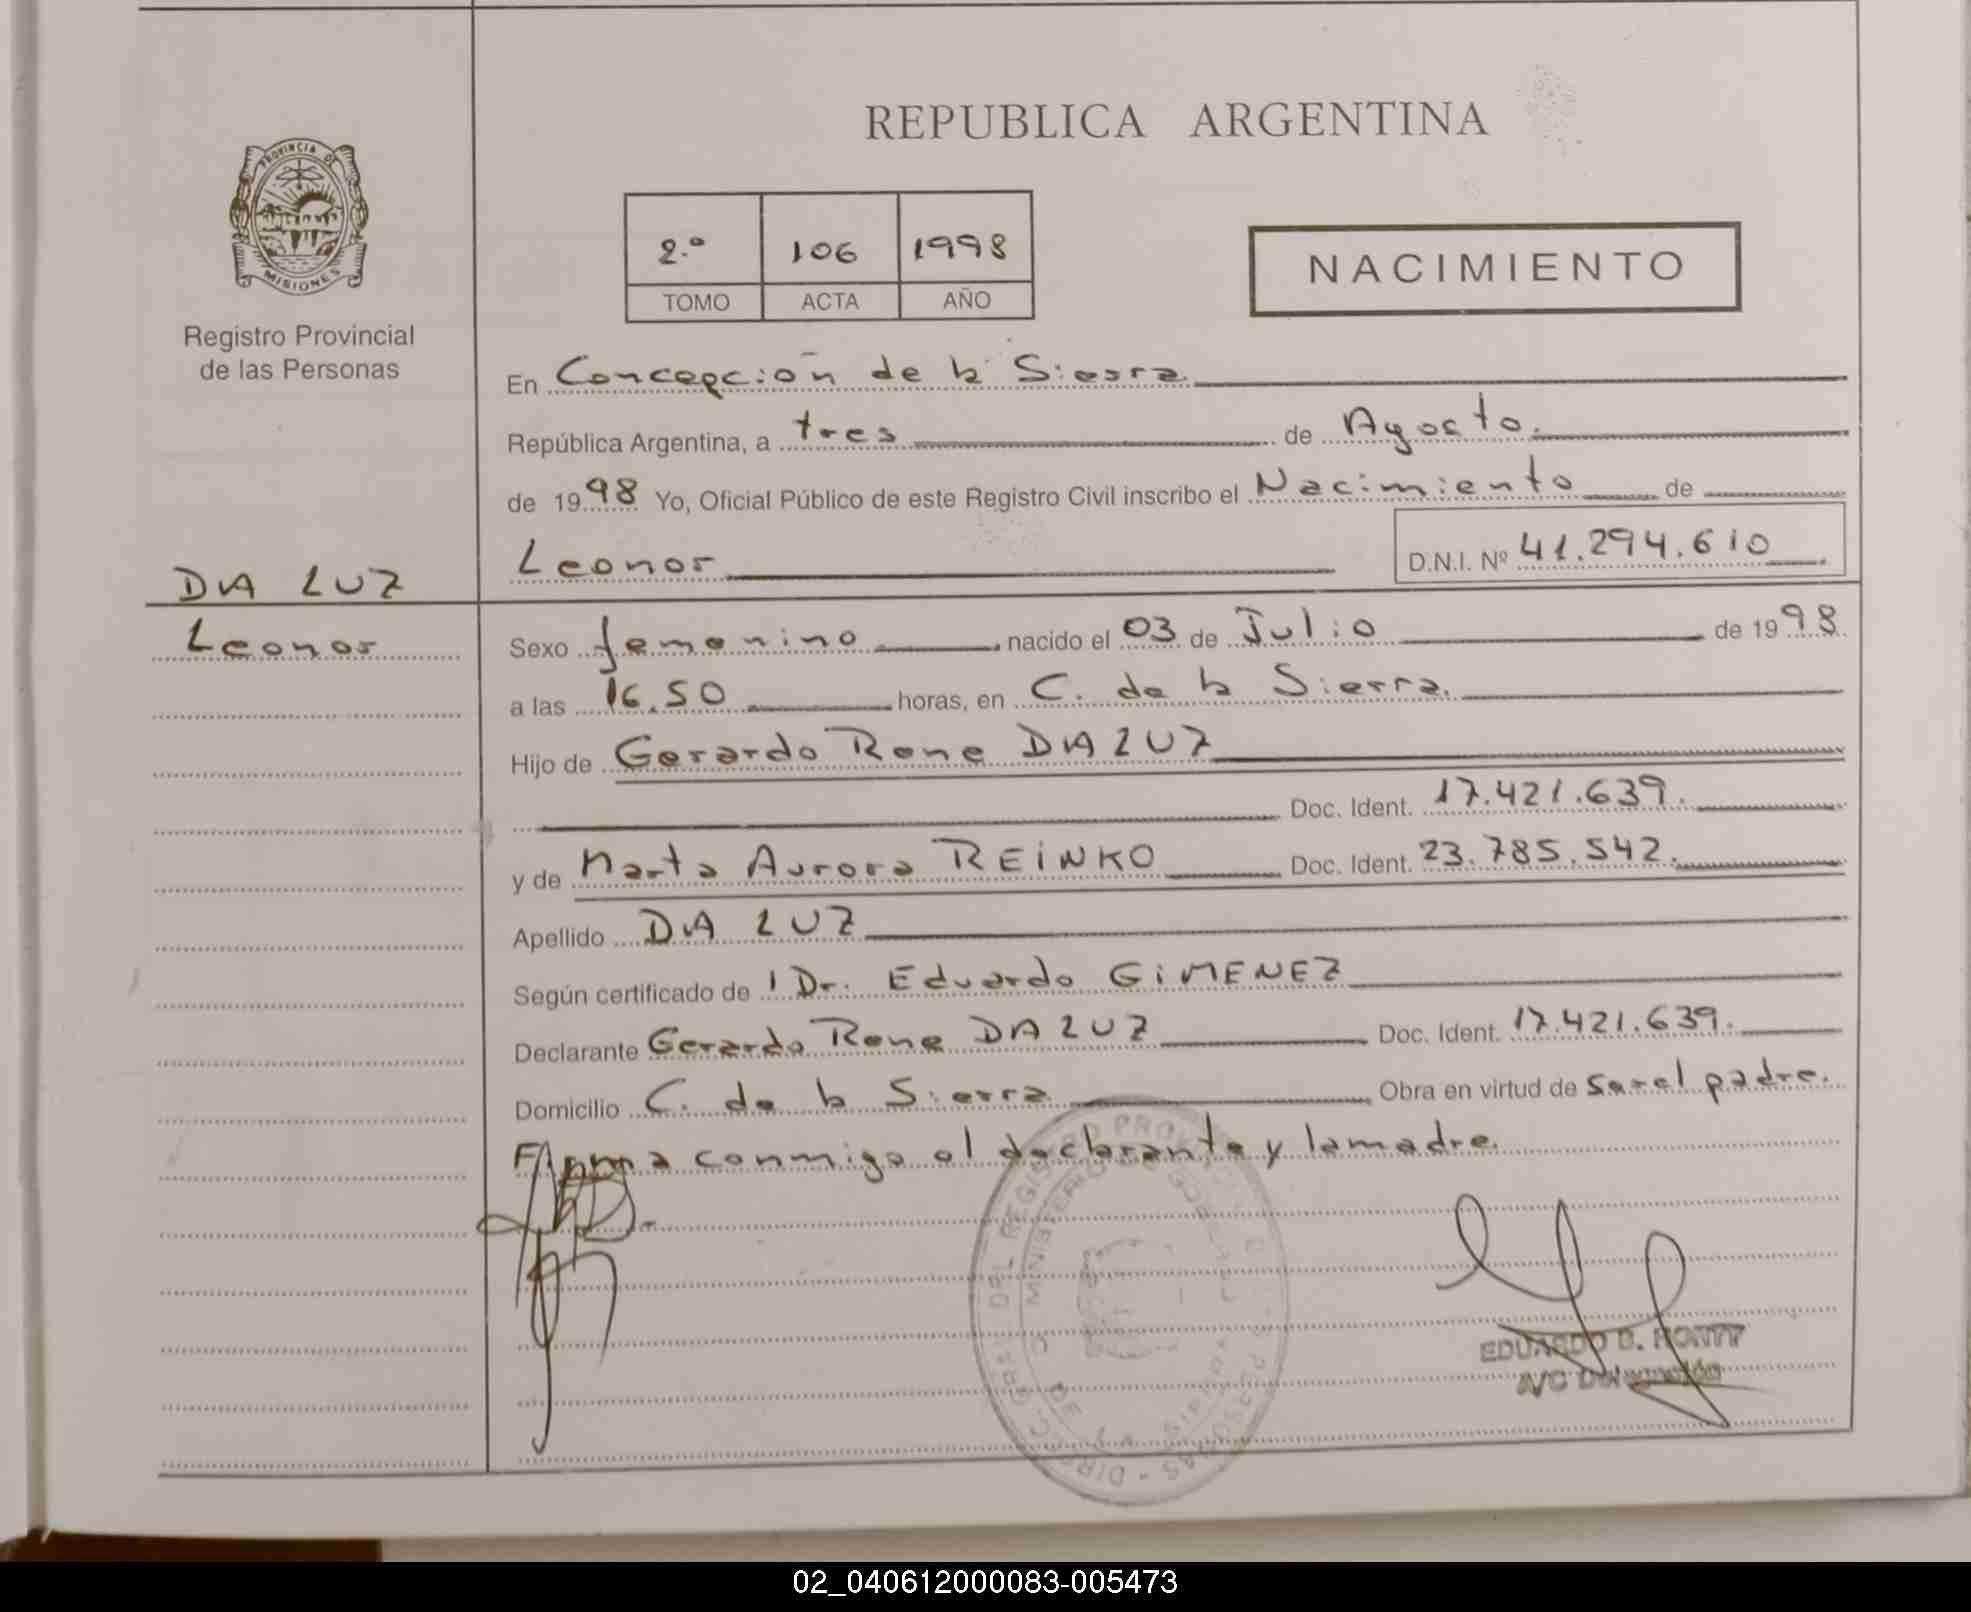 REPUBLICA ARGENTINA
PROVINCIA DE
MISIONES
Registro Provincial
de las Personas
2.º 106 1998
TOMO ACTA AÑO
NACIMIENTO
En Concepción de la Sierra
República Argentina, a tres de Agosto.
de 1998 Yo, Oficial Público de este Registro Civil inscribo el Nacimiento de
Leonor D.N.I. Nº 41.294.610
DA LUZ
Leonor
Sexo femenino nacido el 03 de Julio de 1998
a las 16.50 horas, en C. de la Sierra.
Hijo de Gerardo Rene DA LUZ
Doc. Ident. 17.421.639.
y de Marta Aurora REINKO Doc. Ident. 23.785.542.
Apellido DA LUZ
Según certificado de 1 Dr. Eduardo GIMENEZ
Declarante Gerardo Rene DA LUZ Doc. Ident. 17.421.639.
Domicilio C. de la Sierra Obra en virtud de ser el padre.
Firma conmigo el declarante y la madre.
DEL REGISTRO
MINISTERIO
EDUARDO
A/C Delegación
02_040612000083-005473